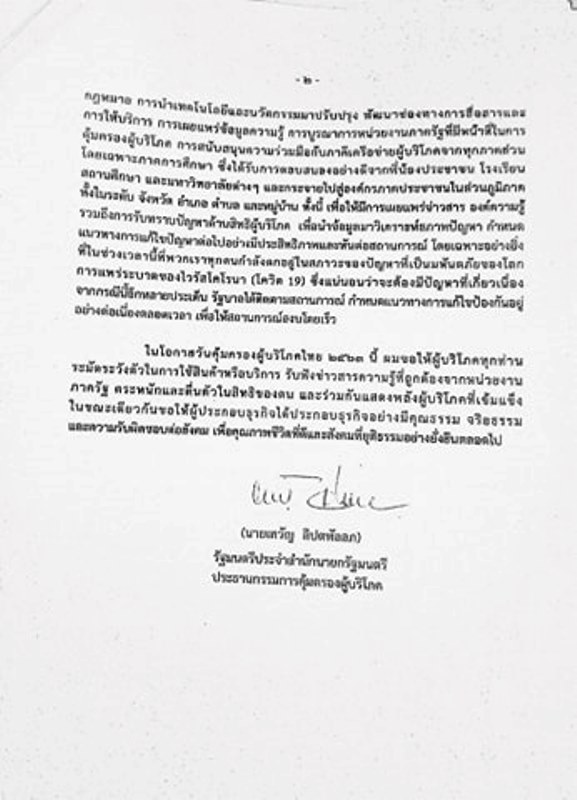 - ๒ -
กฎหมาย การนำเทคโนโลยีและนวัตกรรมมาปรับปรุง พัฒนาช่องทางการสื่อสารและ
การให้บริการ การเผยแพร่ข้อมูลความรู้ การบูรณาการหน่วยงานภาครัฐที่มีหน้าที่ในการ
คุ้มครองผู้บริโภค การสนับสนุนความร่วมมือกับภาคีเครือข่ายผู้บริโภคจากทุกภาคส่วน
โดยเฉพาะภาคการศึกษา ซึ่งได้รับการตอบสนองอย่างดีจากพี่น้องประชาชน โรงเรียน
สถานศึกษา และมหาวิทยาลัยต่างๆ และกระจายไปสู่องค์กรภาคประชาชนในส่วนภูมิภาค
ทั้งในระดับ จังหวัด อำเภอ ตำบล และหมู่บ้าน ทั้งนี้ เพื่อให้มีการเผยแพร่ข่าวสาร องค์ความรู้
รวมถึงการรับทราบปัญหาด้านสิทธิผู้บริโภค เพื่อนำข้อมูลมาวิเคราะห์สภาพปัญหา กำหนด
แนวทางการแก้ไขปัญหาต่อไปอย่างมีประสิทธิภาพและทันต่อสถานการณ์ โดยเฉพาะอย่างยิ่ง
ที่ในช่วงเวลานี้ที่พวกเราทุกคนกำลังตกอยู่ในสภาวะของปัญหาที่เป็นมหันตภัยของโลก
การแพร่ระบาดของไวรัสโคโรนา (โควิด 19) ซึ่งแน่นอนว่าจะต้องมีปัญหาที่เกี่ยวเนื่อง
จากกรณีนี้อีกหลายประเด็น รัฐบาลได้ติดตามสถานการณ์ กำหนดแนวทางการแก้ไขป้องกันอยู่
อย่างต่อเนื่องตลอดเวลา เพื่อให้สถานการณ์สงบโดยเร็ว
ในโอกาสวันคุ้มครองผู้บริโภคไทย ๒๕๖๓ นี้ ผมขอให้ผู้บริโภคทุกท่าน
ระมัดระวังตัวในการใช้สินค้าหรือบริการ รับฟังข่าวสารความรู้ที่ถูกต้องจากหน่วยงาน
ภาครัฐ ตระหนักและตื่นตัวในสิทธิของตน และร่วมกันแสดงพลังผู้บริโภคที่เข้มแข็ง
ในขณะเดียวกันขอให้ผู้ประกอบธุรกิจได้ประกอบธุรกิจอย่างมีคุณธรรม จริยธรรม
และความรับผิดชอบต่อสังคม เพื่อคุณภาพชีวิตที่ดีและสังคมที่ยุติธรรมอย่างยั่งยืนตลอดไป
(นายเทวัญ ลิปตพัลลภ)
รัฐมนตรีประจำสำนักนายกรัฐมนตรี
ประธานกรรมการคุ้มครองผู้บริโภค